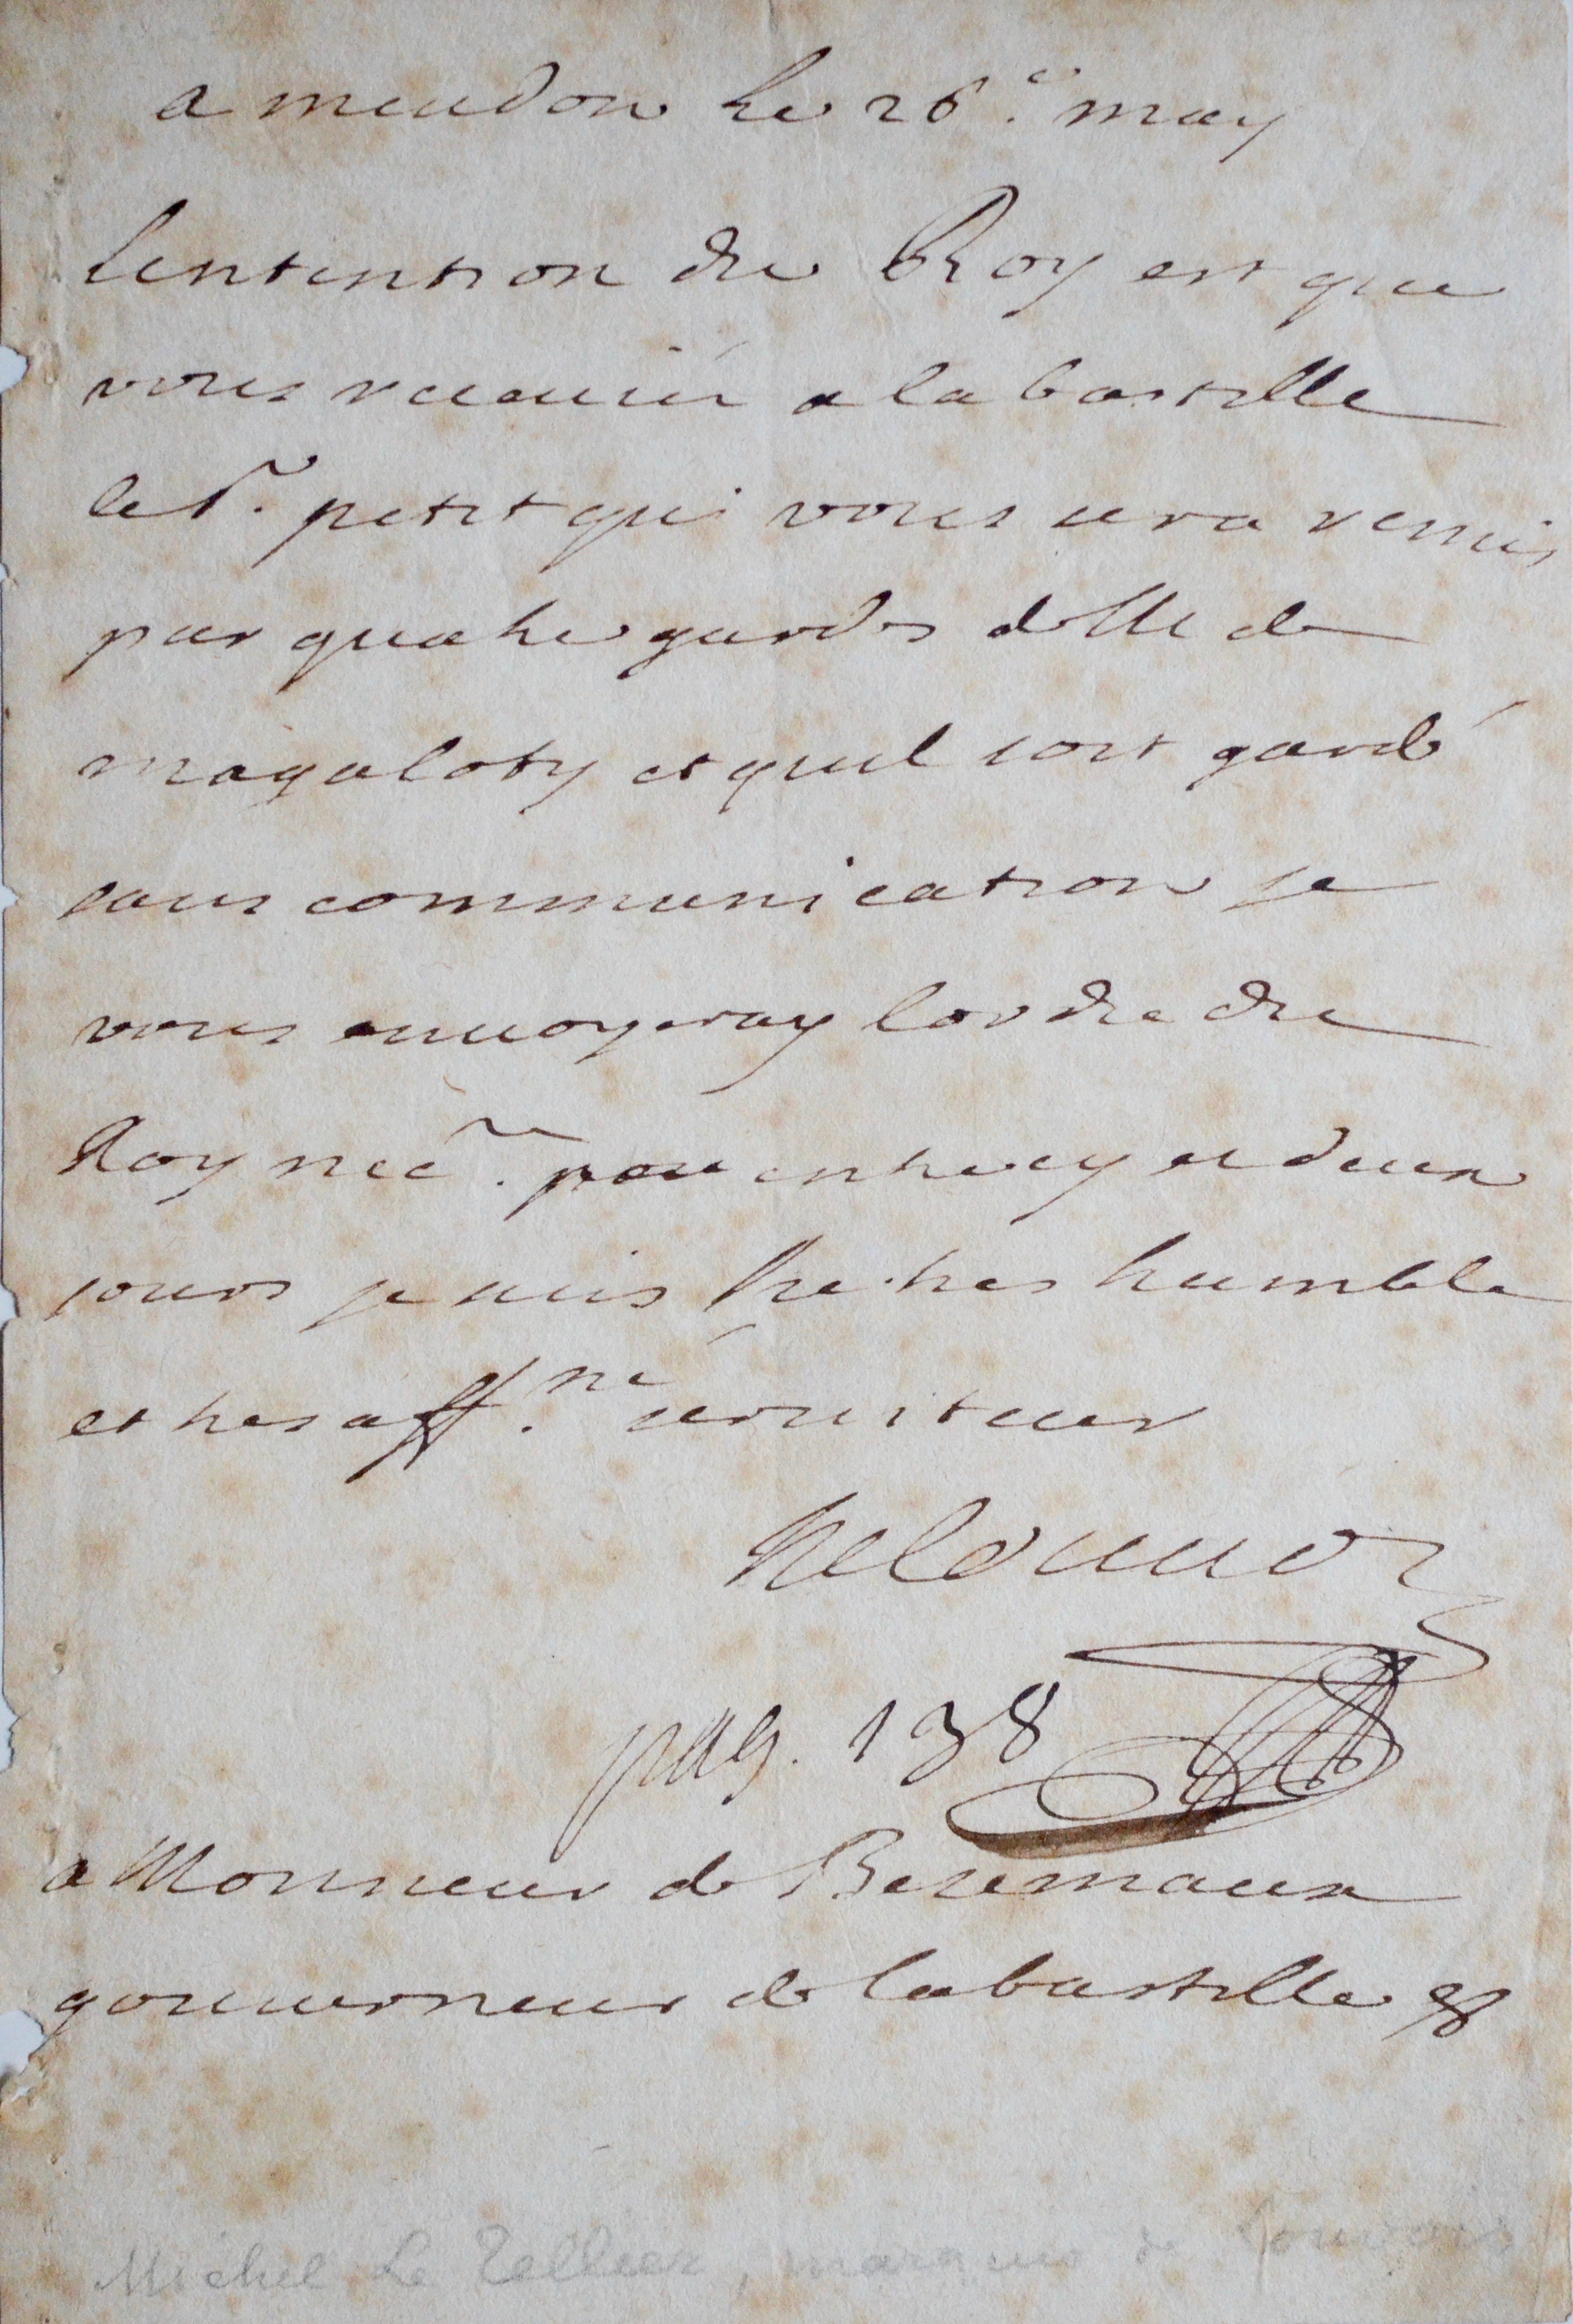 a meudon le 26.e may
lentention du Roy est que
vous receuiés a la bastille
le Sr. petit qui vous sera remis
par quatre gardes de M de
magaloty et quil soit gardé
sans communication je
vous enuoyeray lordre du
Roy necre. pour entre cy et deux
jours je suis tres humble
et tres affne. seruiteur
De Louuois
pag. 138
a Monsieur de Besemaux
gouuerneur de la bastille
Michel Le Tellier, marquis de Louvois